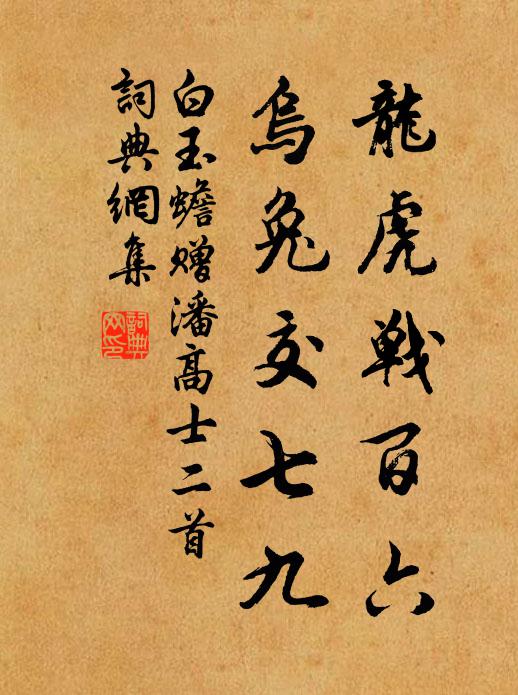 龍虎戰百六
烏兔交七九
白玉蟾贈潘高士二首
詞典網集
詞典網印